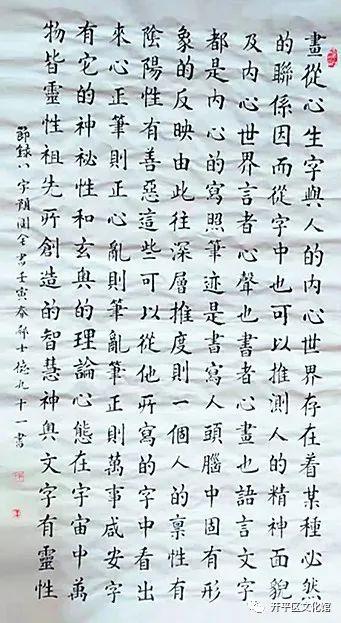 畫從心生字與人的内心世界存在着某種必然
的聯係因而從字中也可以推測人的精神面貌
及内心世界言者心聲也書者心畫也語言文字
都是内心的寫照筆迹是書寫人頭腦中固有形
象的反映由此往深層推度則一個人的禀性有
陰陽性有善惡這些可以從他所寫的字中看出
來心正筆則正心亂則筆亂筆正則萬事咸安字
有它的神祕性和玄奥的理論心態在宇宙中萬
物皆靈性祖先所創造的智慧神奥文字有靈性
節録八字預測全書壬寅春郝士億九十一書
开平区文化馆